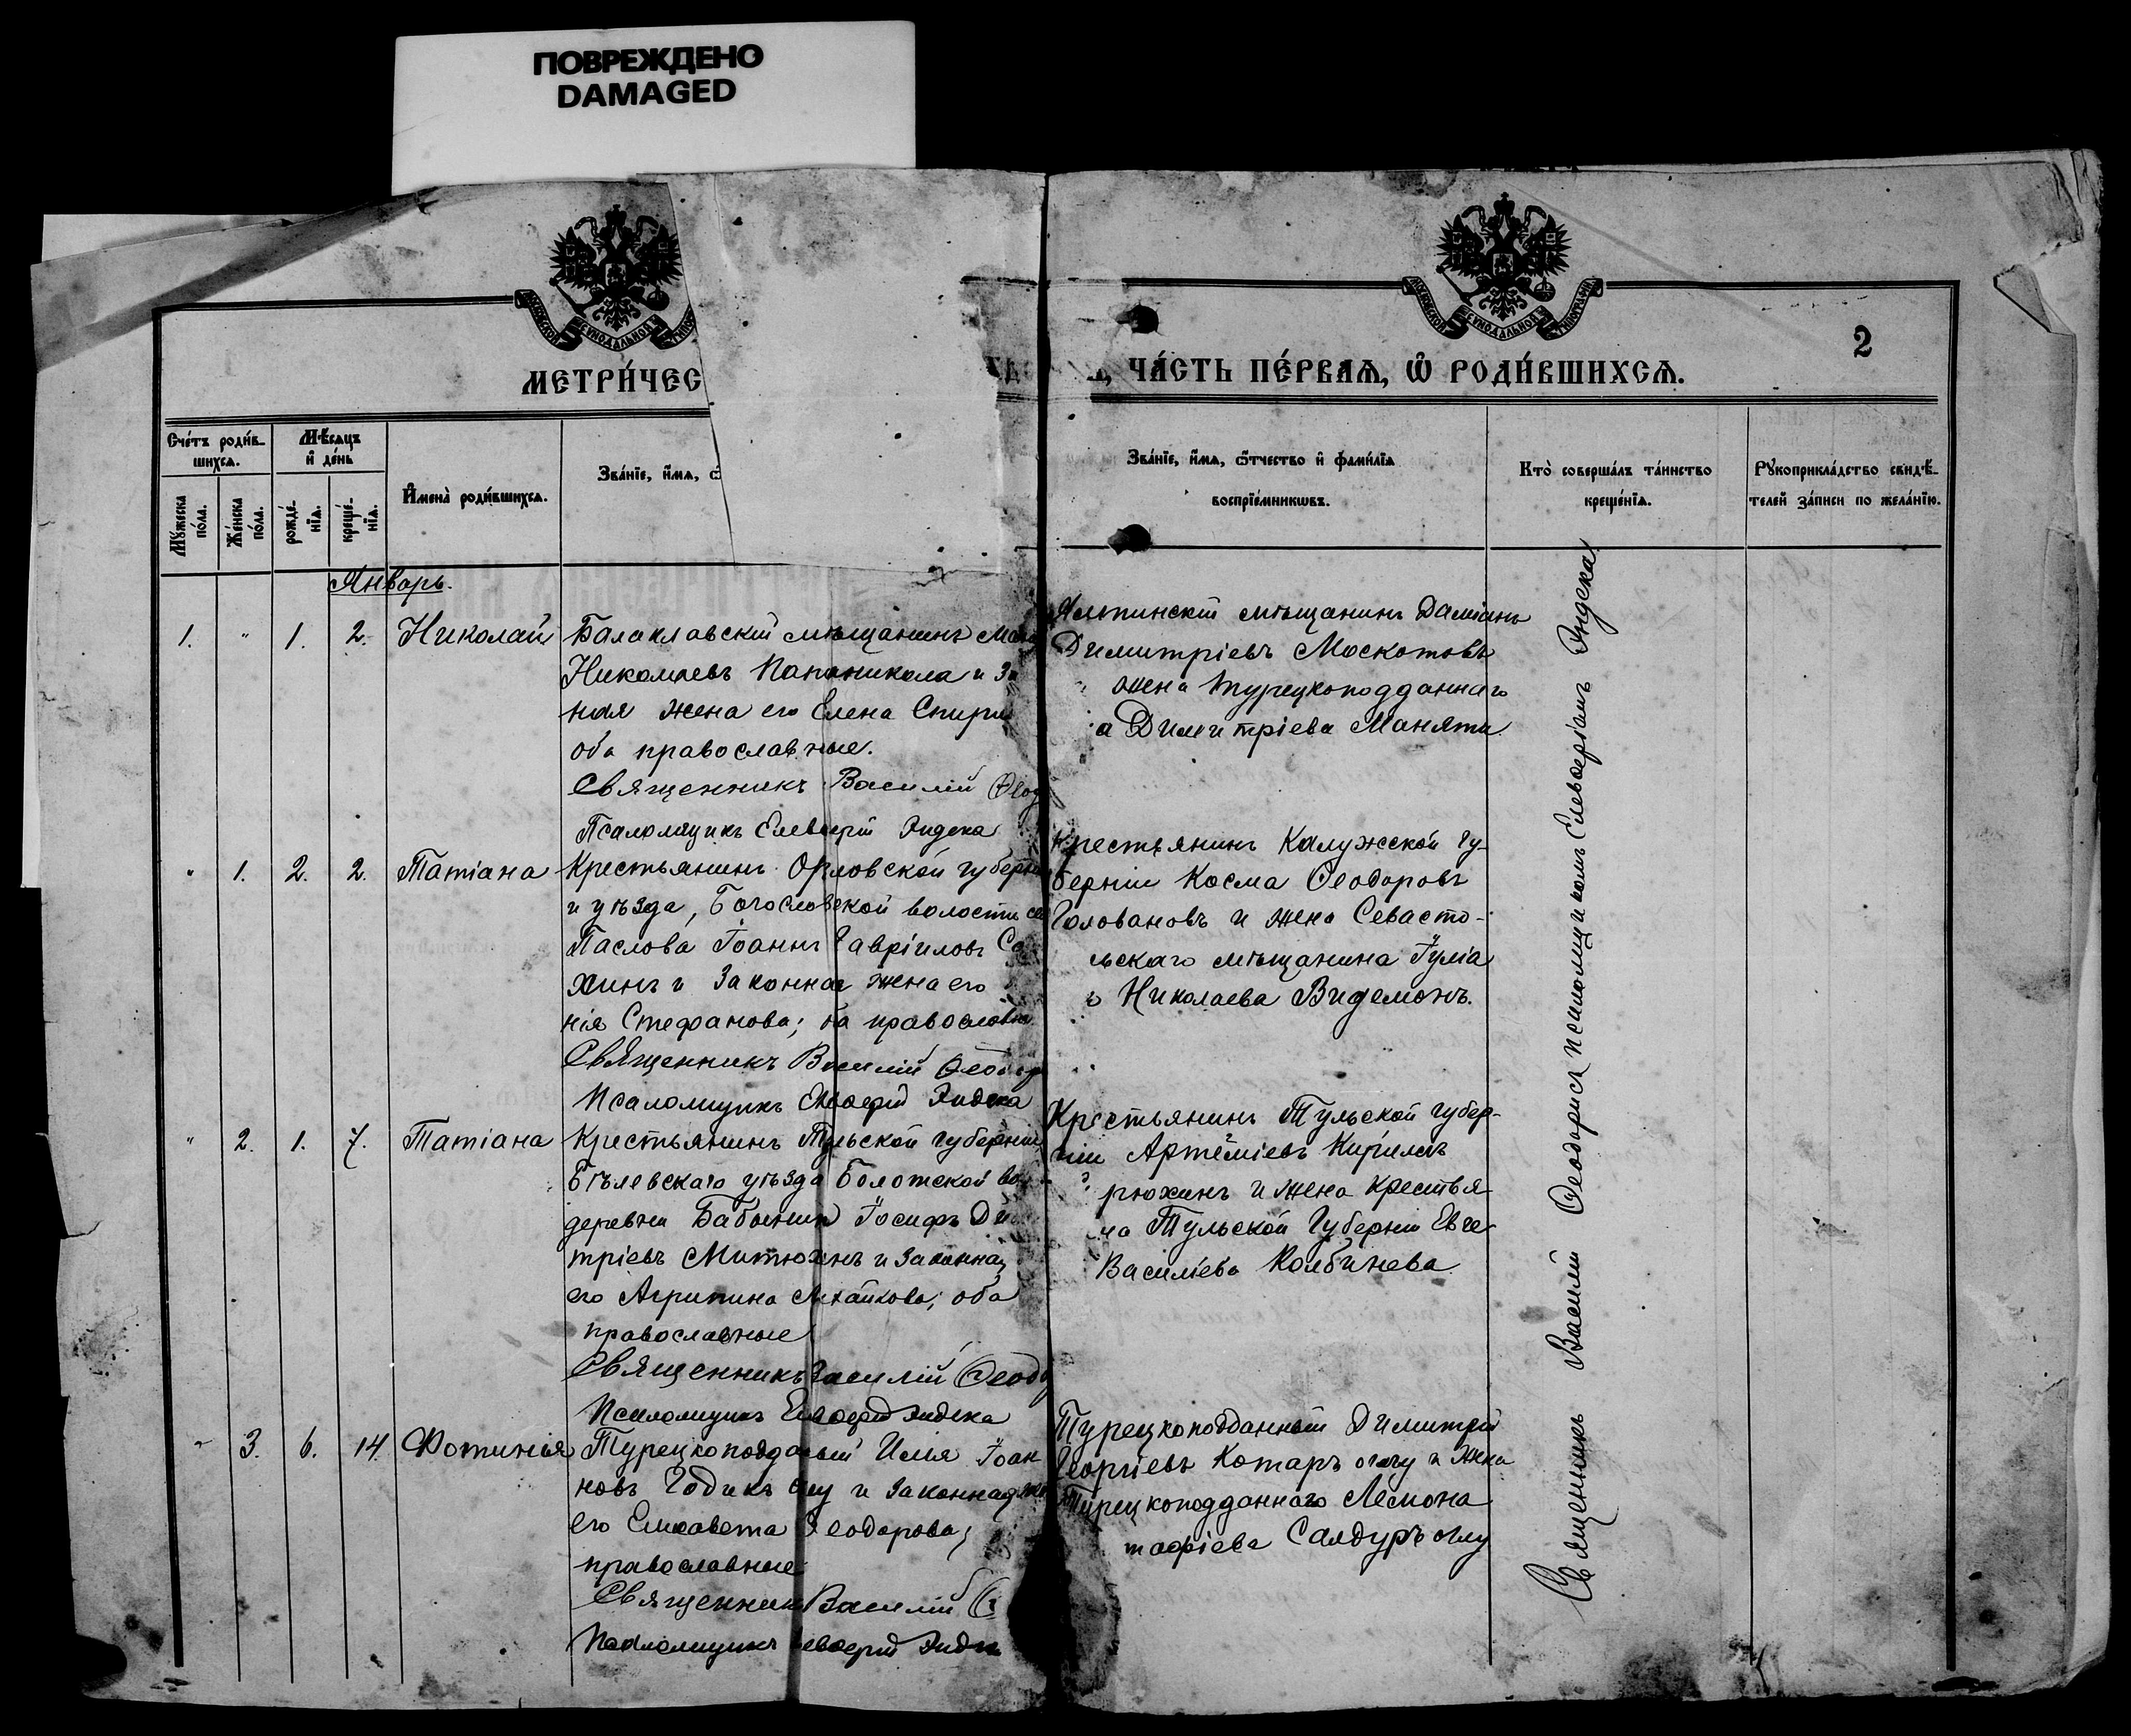 ПОВРЕЖДЕНО
DAMAGED
2
МЕТРИ́ЧЕС
ЧА́СТЬ ПЕ́РВАѦ, Ѡ РОДИ́ВШИХСѦ.
Сче́тъ роди́в-
шихсѧ.
Мꙋ́жеска
по́ла.
Же́нска
по́ла.
Мѣ́сѧцъ
и҆ де́нь
рожде́-
нїѧ.
креще́-
нїѧ.
И҆мена̀ роди́вшихсѧ.
Зва́нїе, и҆́мѧ,
Зва́нїе, и҆́мѧ, ѻ҆́тчество и҆ фами́лїѧ
воспрїе́мникѡвъ.
Кто̀ соверша́лъ та́инство
креще́нїѧ.
Рꙋкоприкла́дство свидѣ́-
телей за́писи по жела́нїю.
Январь.
1. " 1. 2. Николай
Балаклавскій мѣщанинъ
Николаевъ Папаникола и
ная жена его Елена
оба православные.
Священникъ Василій
Псаломщикъ Елевѳерій Яндека
Ялтинскій мѣщанинъ Даміанъ
Димитріевъ Москотовъ
жена турецкоподданнаго
Димитріева Маняти
" 1. 2. 2. Татіана
Крестьянинъ Орловской губерніи
и уѣзда, Богословской волости
Паслова Іоаннъ Гавріиловъ
хинъ и законная жена его
нія Стефанова; православные
Священникъ Василій
Псаломщикъ Елевѳерій Яндека
Крестьянинъ Калужской Гу-
берніи Косма Ѳеодоровъ
Головановъ и жена Севасто-
льскаго мѣщанина Іуліа
Николаева Видемонъ.
" 2. 1. 7. Татіана
Крестьянинъ Тульской губерніи
Бѣлевскаго уѣзда Болотской
деревни Бабынина Іосифъ
тріевъ Митюхинъ и законная
его Агрипина оба
православные
Священникъ Василій
Псаломщикъ Елевѳерій Яндека
Крестьянинъ Тульской губер-
ніи Артеміевъ Кириллъ
рюхинъ и жена крестья
на Тульской Губерніи Евге
Василіева Колбинева
" 3. 6. 14. Фотинія
Турецкоподданый Илія Іоан
новъ Годикъ оглу и законная
его Елисавета Ѳеодорова;
православные
Священникъ Василій
Псаломщикъ Елевѳерій
Турецкоподданный Димитрій
Георгіевъ Котаръ оглу и жена
Турецкоподданнаго
Салдуръ оглу
Священникъ Василій Ѳеодориси псаломщикомъ Елевѳеріемъ Яндека